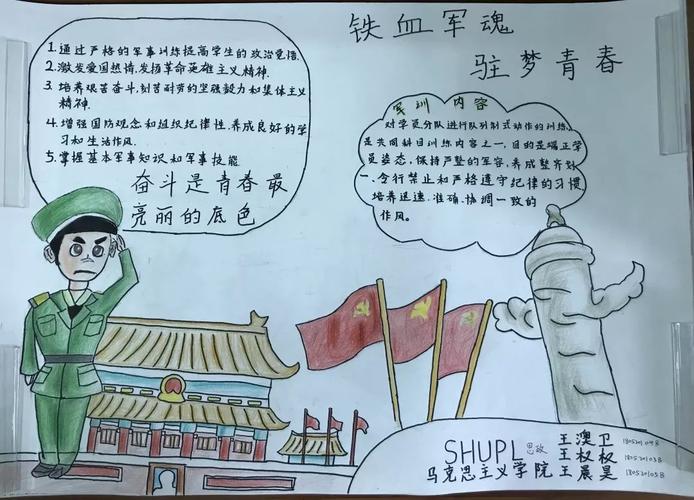 铁血军魂
驻梦青春
1.通过严格的军事训练提高学生的政治觉悟.
2.激发爱国热情,发扬革命英雄主义精神.
3.培养艰苦奋斗,刻苦耐劳的坚强毅力和集体主义
精神.
4.增强国防观念和组织纪律性,养成良好的学
习和生活作风.
5.掌握基本军事知识和军事技能
奋斗是青春最
亮丽的底色
军训内容
对学员分队进行队列制式动作的训练,
是共同科目训练内容之一,目的是端正学
员姿态,保持严整的军容,养成整齐划
一、令行禁止和严格遵守纪律的习惯
培养迅速.准确.协调一致的
作风。
SHUPL 思政 王澳卫
王权权
马克思主义学院 王晨昊